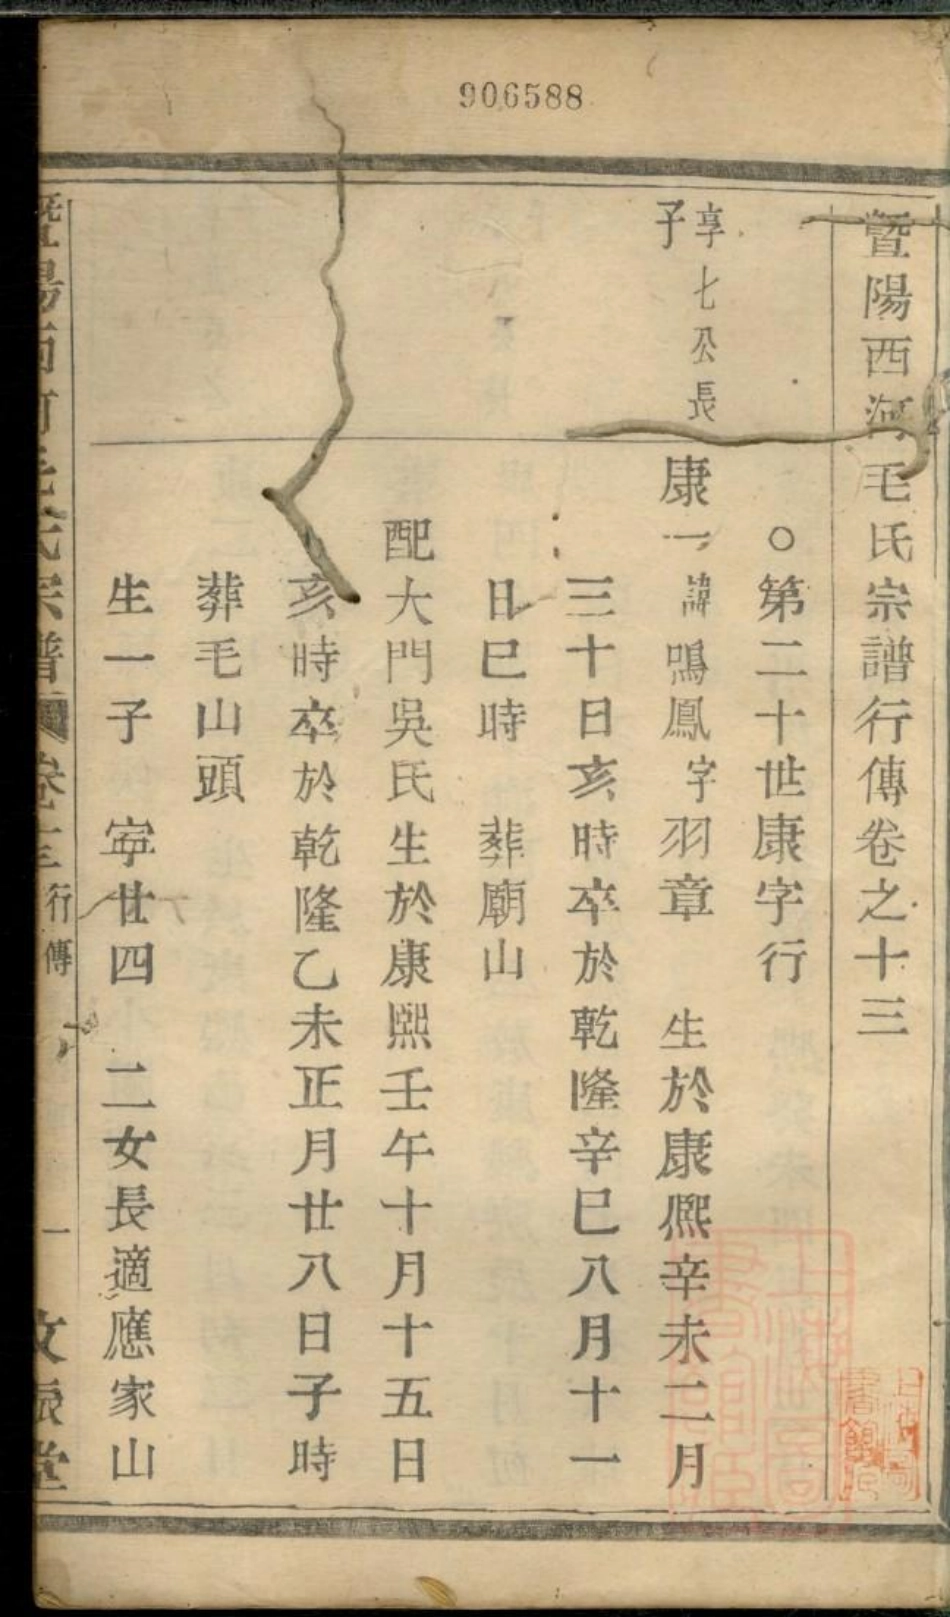 906588
暨陽西河毛氏宗譜行傳卷之十三
○第二十世康字行
享七公長
子
康一諱鳴鳳字羽章 生於康熙辛未二月
三十日亥時卒於乾隆辛巳八月十一
日巳時 葬廟山
配大門吳氏生於康熙壬午十月十五日
亥時卒於乾隆乙未正月廿八日子時
葬毛山頭
生一子 寧廿四 二女長適應家山
暨陽西河毛氏宗譜 卷十三 行傳 一 文宸堂